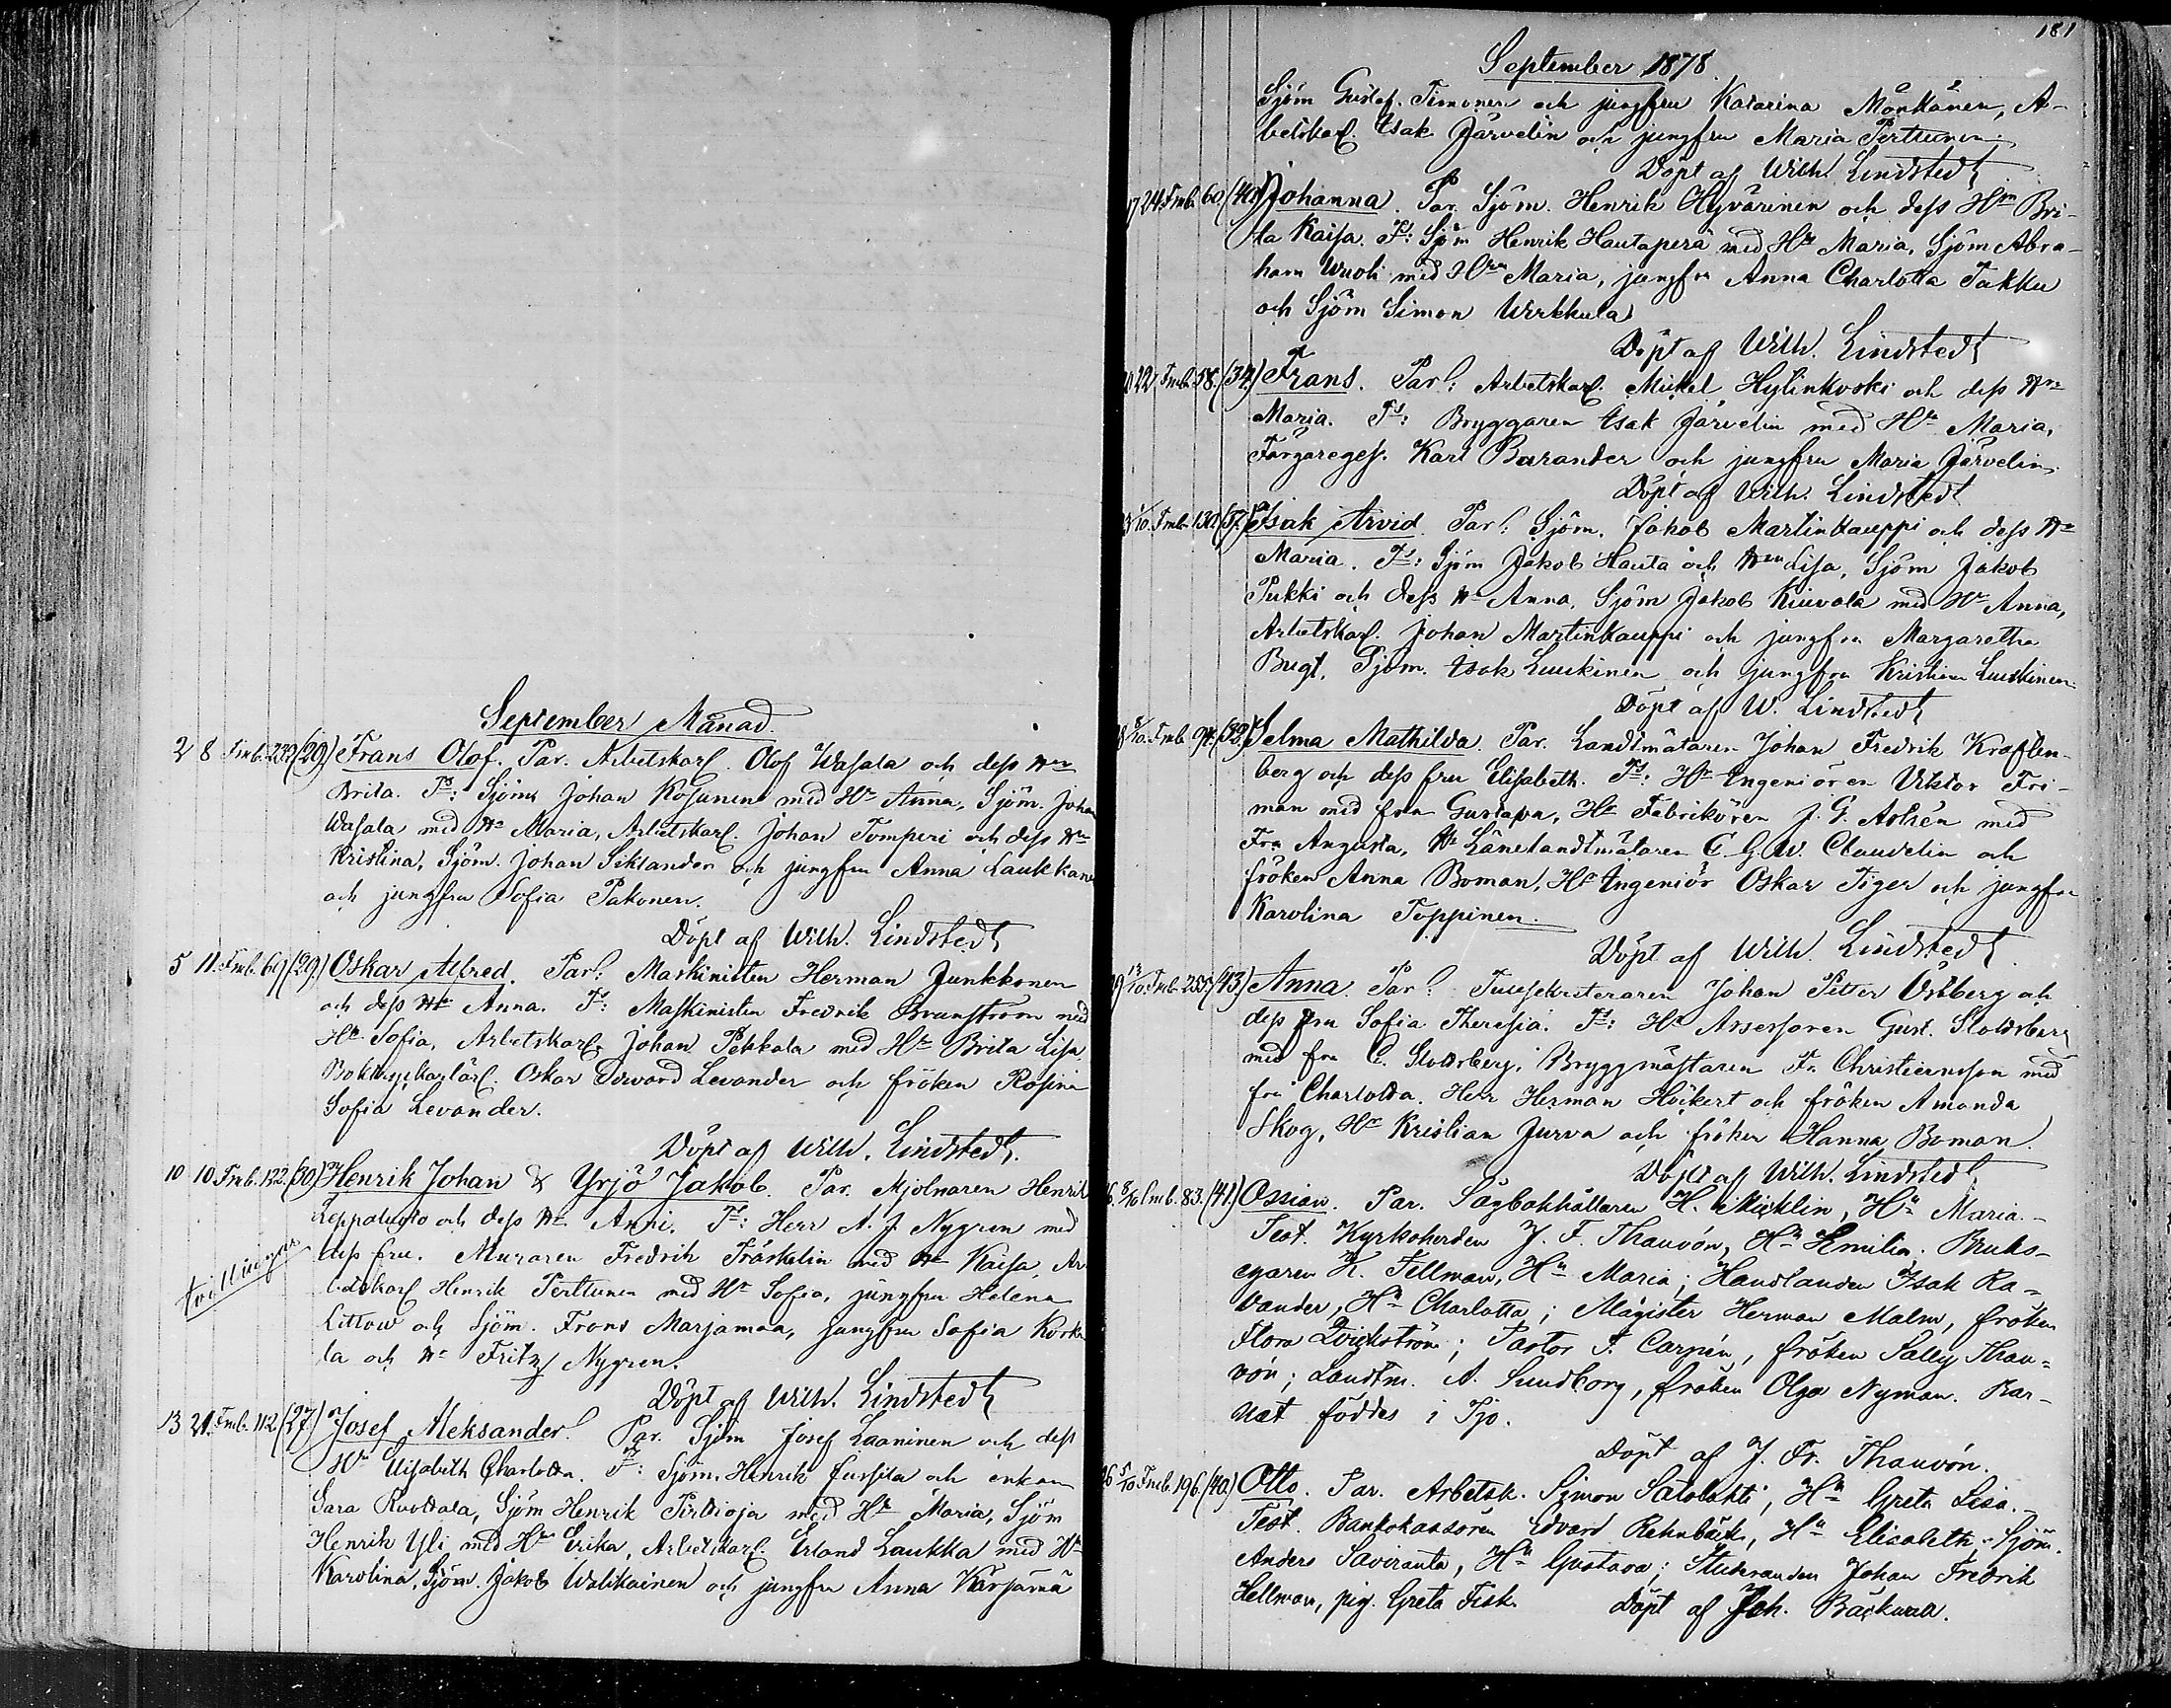 September Månad
2 8 Fmb. 232 (29) Frans Olof. Par. Arbetskarl. Olof Wasala och dess Hn
Brita. Ts: Sjöm Johan Kosunen med Hn Anna, Sjöm. Johan
Wasala med Hn Maria, Arbetskarl. Johan Tomperi och dess Hn
Kristina, Sjöm. Johan Siklander och jungfru Anna Laukkanen
och jungfru Sofia Pakonen.
Döpt af Wilh. Lindstedt
5 11. Fmb. 69 (29) Oskar Alfred. Par: Maskinisten Herman Junkkonen
och dess Hn Anna. Ts: Maskinisten Fredrik Brunström med
Hn Sofia, Arbetskarl. Johan Pekkala med Hn Brita Lisa
Oskar Edward Levander och fröken Rosina
Sofia Levander.
Döpt af Wilh. Lindstedt.
10 10 Fmb. 122. (30) Henrik Johan & Yrjö Jakob. Par. Mjölnaren Henrik
Leppaluoto och dess Hn Anni. Ts: Herr A. J. Nygren med
dess fru. Muraren Fredrik Träskelin med Hn Kaisa, Ar-
betskarl Henrik Perttunen med Hn Sofia, jungfru Helena
tvillingar
Littow och Sjöm. Frans Marjamaa, jungfru Sofia Korka
la och Hr Fritz Nygren.
Döpt af Wilh. Lindstedt
13 21. Fmb. 112. (27) Josef Aleksander. Par. Sjöm Josef Laaninen och dess
Hn Elisabeth Charlotta. Ts: Sjöm. Henrik Jussila och enkan
Sara Ruottala, Sjöm Henrik Pirttioja med Hn Maria, Sjöm
Henrik Yli med Hn Erika, Arbetskarl. Erland Laukka med Hn
Karolina, Sjöm. Jakob Walikainen och jungfru Anna Kärsämä
181
September 1878.
Sjöm Gustaf Timonen och jungfru Katarina Mönkänen, A-
betskarl. Isak Järvelin och jungfru Maria Perttunen.
Döpt af Wilh. Lindstedt
17 24 Fmb. 60. (40) Johanna. Par. Sjöm. Henrik Hyvärinen och dess Hn Bri-
ta Kaisa. Ts: Sjöm Henrik Hautaperä med Hn Maria, Sjöm Abra-
ham Wuoti med Hn Maria, jungfru Anna Charlotta Takku
och Sjöm Simon Wirkkula
Döpt af Wilh. Lindstedt
20 22 Fmb. 58. (34) Frans. Par: Arbetskarl. Mickel Hylinkoski och dess Hn
Maria. Ts: Bryggaren Isak Järvelin med Hn Maria,
Färgareges. Karl Burander och jungfru Maria Järvelin.
Döpt af Wilh. Lindstedt
/10. Fmb. 130. (37) Isak Arvid. Par: Sjöm. Jakob Martinkauppi och dess Hn
Maria. Ts: Sjöm Jakob Hauta och Hn Lisa, Sjöm Jakob
Pukki och dess Hn Anna, Sjöm Jakob Kiuvala med Hn Anna,
Arbetskarl. Johan Martinkauppi och jungfru Margaretha
Bugt. Sjöm. Isak Luukinen och jungfru Kristina Luukinen
Döpt af W. Lindstedt
/10. Fmb. 94. (32) Selma Mathilda. Par. Landtmätaren Johan Fredrik Kroften-
berg och dess fru Elisabeth. Ts: Hr Ingeniören Viktor Fri-
man med fru Gustava, Hr Fabrikören J. G. Aslién med
Fru Augusta, Hr Länelandtmätaren C. G. W. Claudelin och
fröken Anna Boman, Hr Ingeniör Oskar Tiger och jungfru
Karolina Toppinen.
Döpt af Wilh. Lindstedt
19 13/10. Fmb. 255. (43) Anna. Par: Tullsekreteraren Johan Petter Östberg och
dess fru Sofia Theresia. Ts: Hr Assessoren Gust. Slottsberg
med fru C. Slottsberg, Bryggmästaren Fr. Christiernsson med
fru Charlotta. Herr Herman Höckert och fröken Amanda
Skog, Hr Kristian Jurva och fröken Hanna Boman.
Döpt af Wilh. Lindstedt
16. 8/10 Fmb. 83. (41) Ossian. Par. Sågbokhållaren H. Micklin, Hn Maria. -
Test. Kyrkoherden J. F. Thauvón, Hn Emilia. Bruks-
egaren K. Fellman, Hn Maria; Handlanden Isak Ra-
vander, Hn Charlotta; Magister Herman Malm, fröken
Flora Qvickström; Pastor F. Carpén, fröken Sally Thau-
vón; Landtm. A. Sundborg, fröken Olga Nyman. Bar-
net föddes i Ijo.
Döpt af J. Fr. Thauvón.
26 5/10 Fmb. 196. (40) Otto. Par. Arbetsk. Simon Satolahti, Hn Greta Lisa. -
Test. Bankokassören Edvard Rehnbäck, Hn Elisabeth; Sjöm.
Anders Saviranta, Hn Gustava; Studeranden Johan Fredrik
Hellman, pig. Greta Fisk.
Döpt af Joh. Bäckvall.